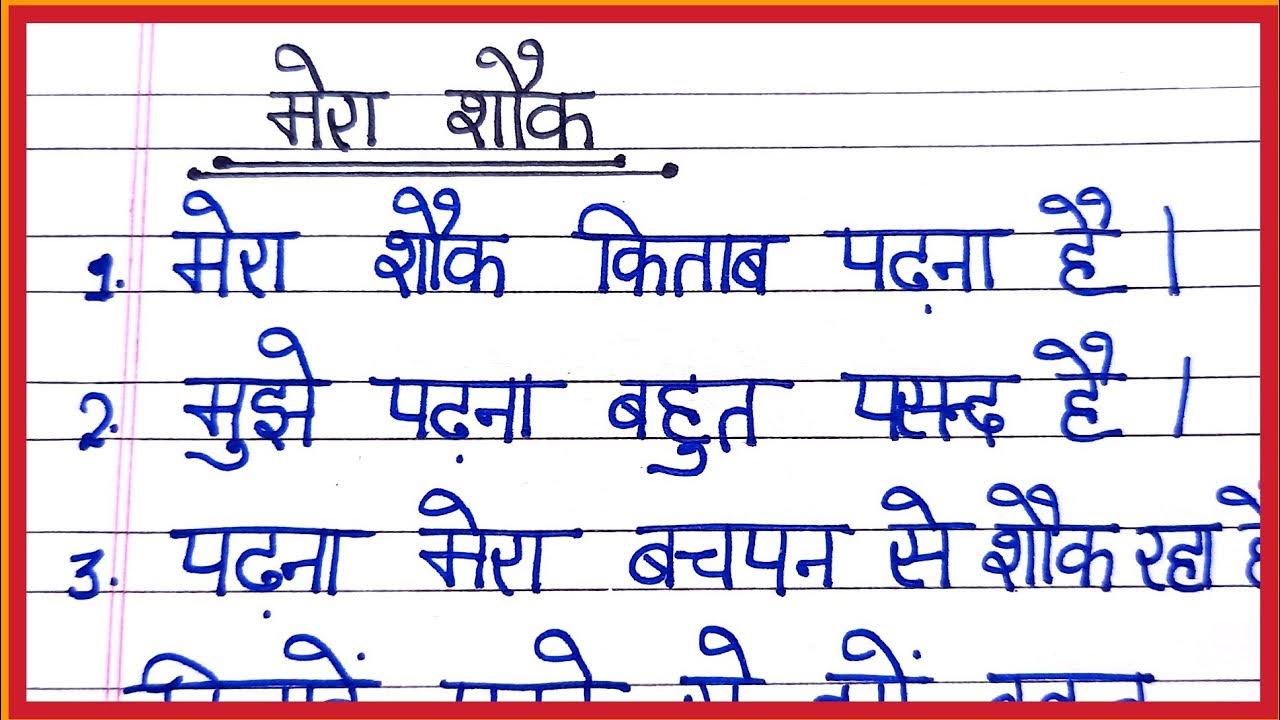 मेरा शौक
1. मेरा शौक किताब पढ़ना है।
2. मुझे पढ़ना बहुत पसन्द है।
3. पढ़ना मेरा बचपन से शौक रहा है